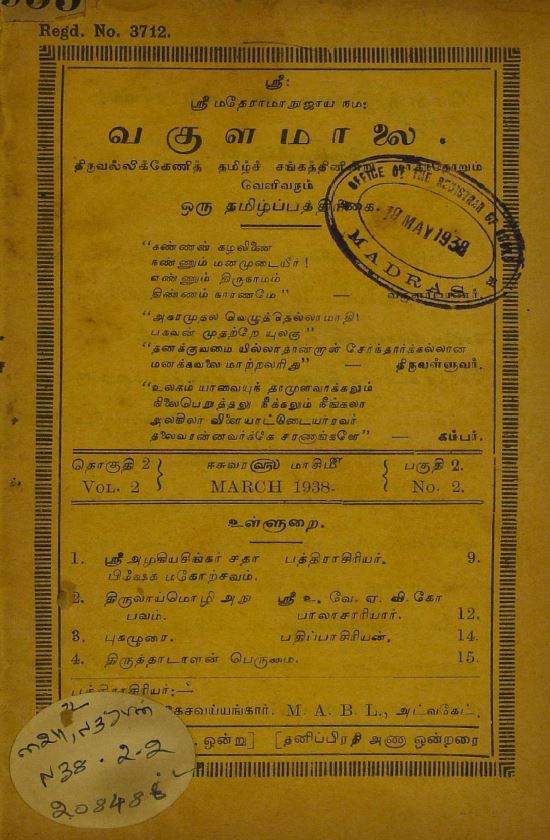 Regd. No. 3712.
ஸ்ரீ:
ஸ்ரீ மதேராமாநுஜாய நம:
வகுளமாலை.
திருவல்லிக்கேணித் தமிழ்ச் சங்கத்தினின்று
வெளிவரும்
ஒரு தமிழ்ப்பத்திரிகை.
OFFICE OF THE REGISTRAR OF BOOKS
19 MAY 1938
MADRAS
"கண்ணன் கழலிணை
நண்ணும் மனமுடையீர்!
எண்ணும் திருநாமம்
திண்ணம் நாரணமே" —
"அகரமுதல வெழுத்தெல்லாமாதி!
பகவன் முதற்றே யுலகு"
"தனக்குவமை யில்லாதானருள் சேர்ந்தார்க்கல்லான்
மனக்கவலை மாற்றலரிது" — திருவள்ளுவர்.
"உலகம் யாவையுந் தாமுளவாக்கலும்
நிலைபெறுத்தலு நீக்கலும் நீங்கலா
அலகிலா விளையாட்டுடையாரவர்
தலைவரன்னவர்க்கே சரணாங்களே" — கம்பர்.
தொகுதி 2 ஈசுவர௵ மாசிமீ பகுதி 2.
VOL. 2 MARCH 1938. No. 2.
உள்ளுறை.
1. ஸ்ரீ அழகியசிங்கர் சதா பத்திராசிரியர். 9.
பிஷேக மகோற்சவம்.
2. திருவாய்மொழி அநு ஸ்ரீ உ. வே. ஏ. வி. கோ
பவம். பாலாசாரியார். 12.
3. புகழுரை. பதிப்பாசிரியன். 14.
4. திருத்தாடாளன் பெருமை. 15.
பத்திராசிரியர்:—
கேசவய்யங்கார். M. A. B. L., அட்வகேட்.
ஒன்று] [தனிப்பிரதி அணா ஒன்றரை
N38.2-2
208488